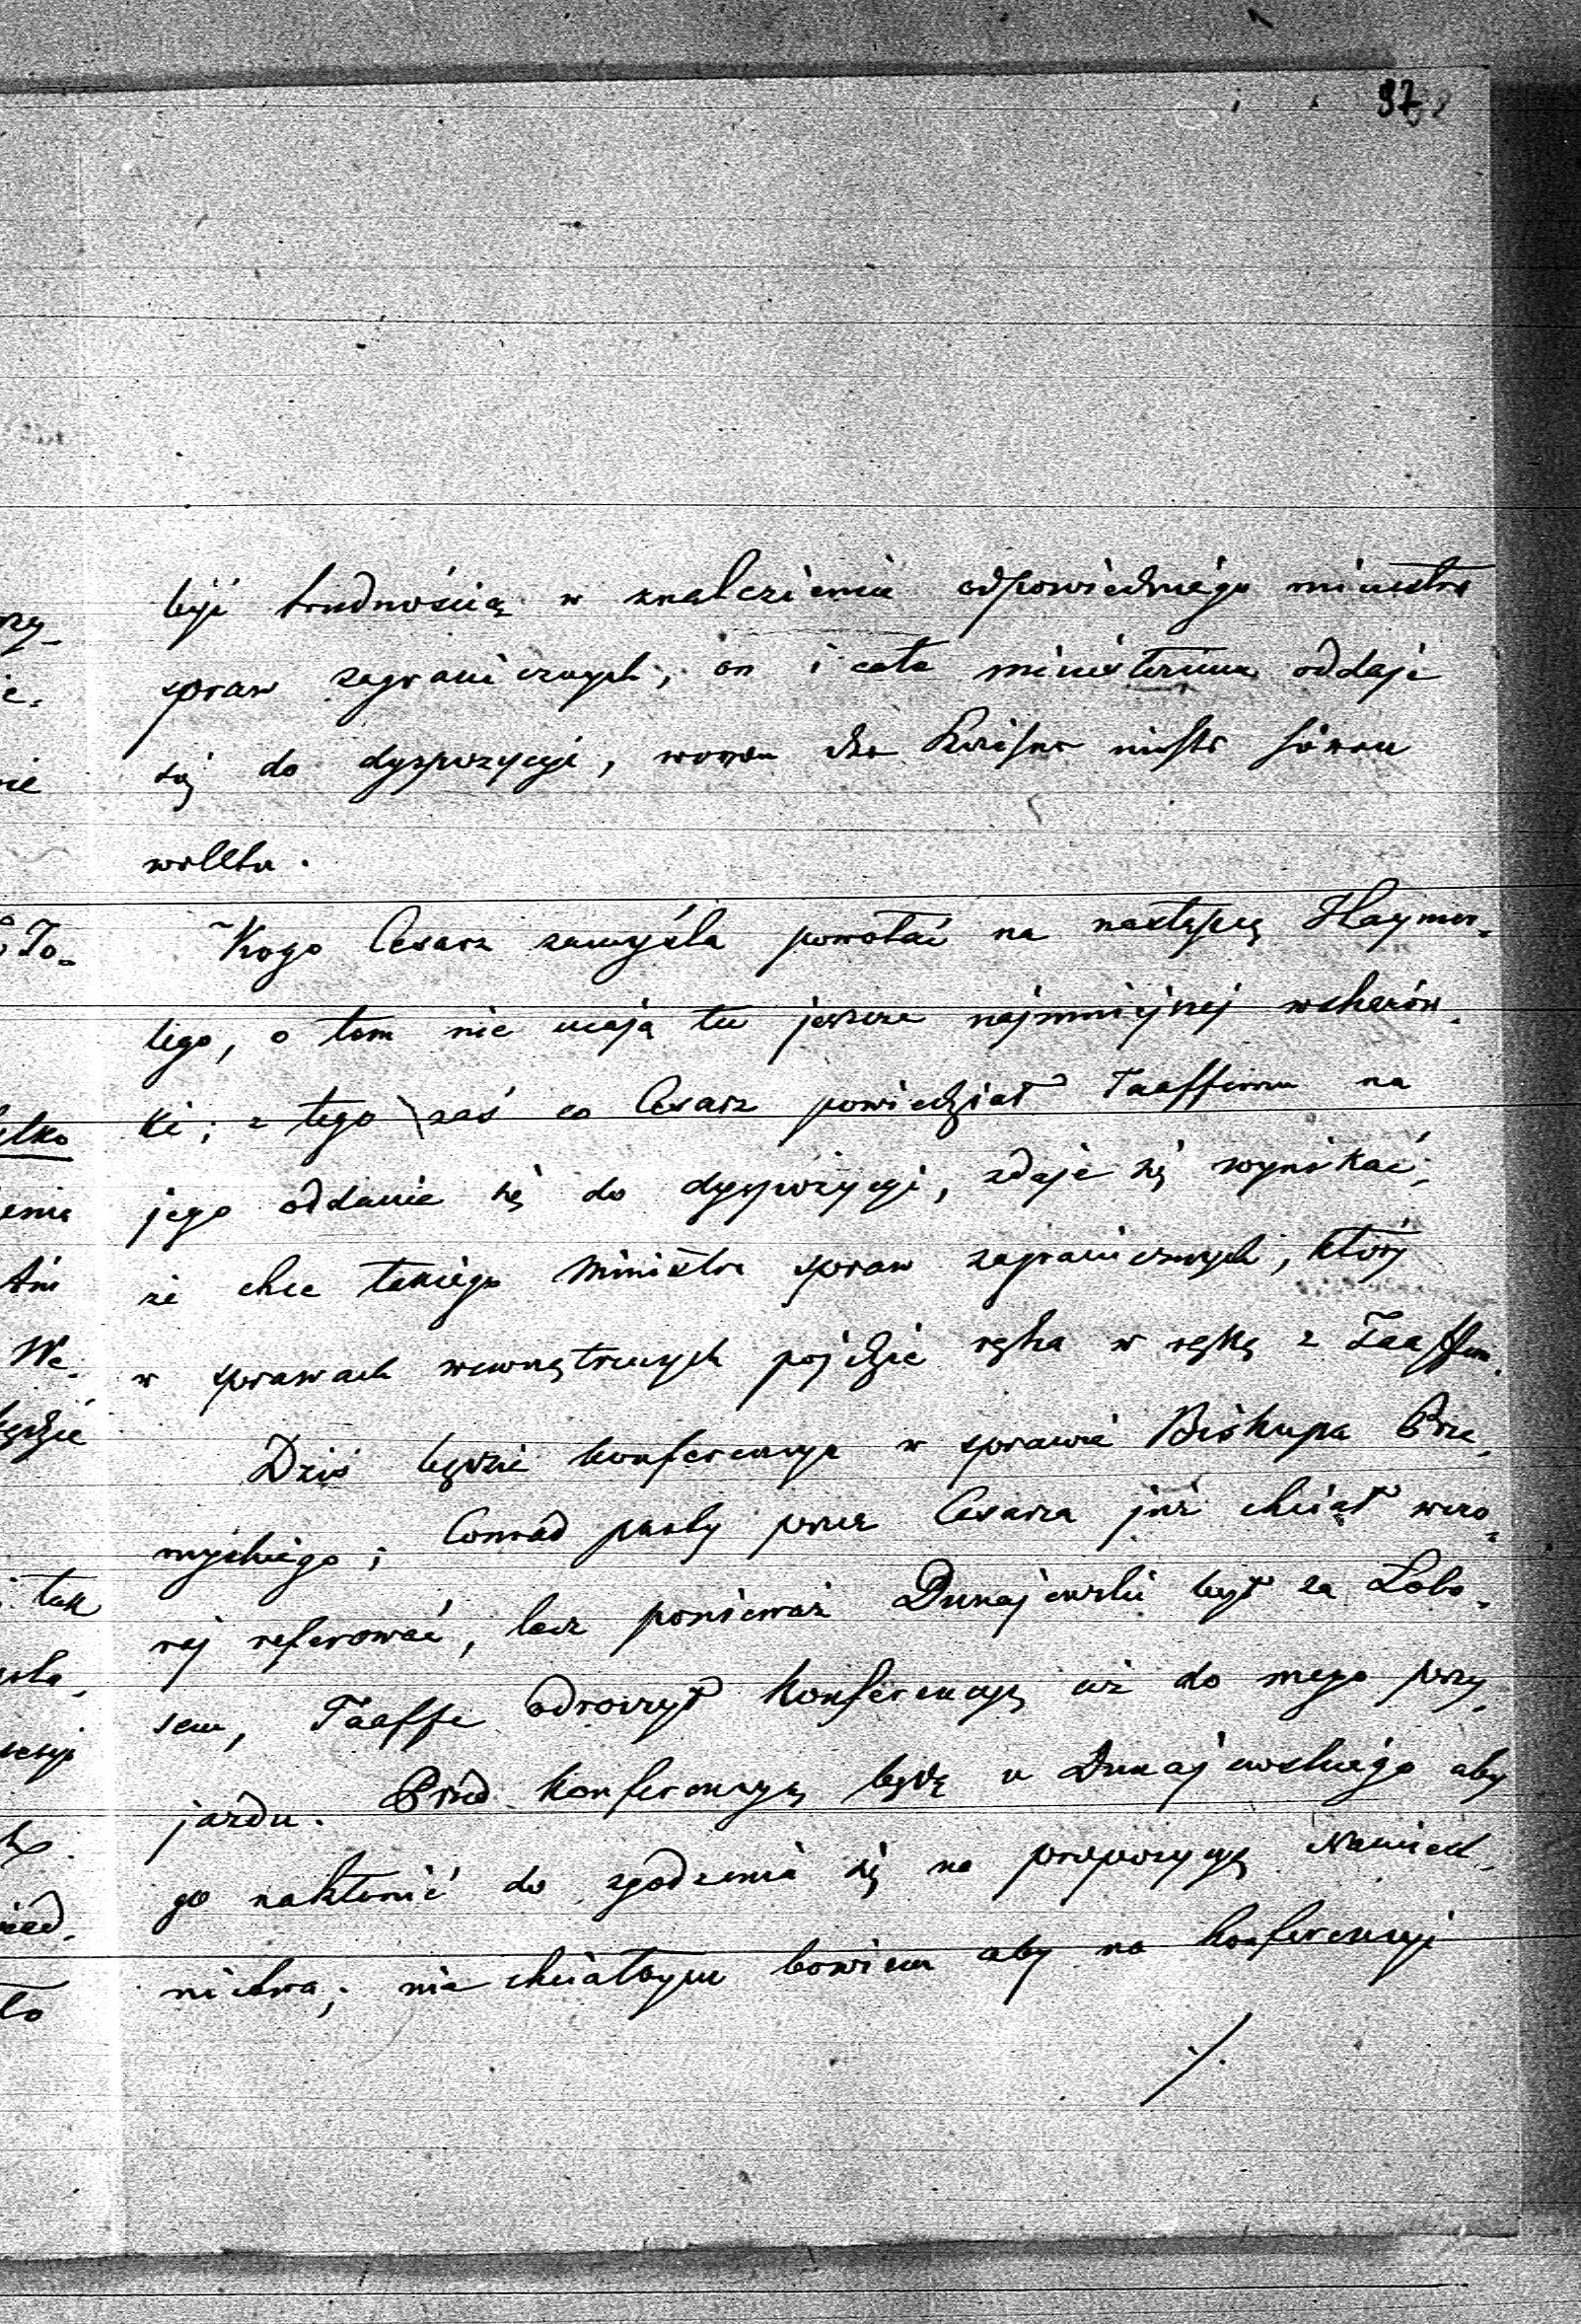 97
być trudnością w znalezieniu odpowiedniego ministra
spraw zagranicznych, on i całe ministerium oddaje
się do dyspozycyi, wovon der Kaiser nichts hören
wollte.
Kogo Cesarz zamyśla powołać na następcę Haymer-
lego, o tem nie mają tu jeszcze najmniejszej wskazów-
ki; z tego zaś co Cesarz powiedział Taaffemu na
jego oddanie się do dyspozycyi, zdaje się wynikać,
że chce takiego ministra spraw zagranicznych, który
w sprawach wewnętrznych pójdzie ręka w rękę z Taaffem.
Dziś będzie konferencya w sprawie Biskupa Prze-
myskiego; Conrad party przez Cesarza już chciał wczo-
raj referować, lecz ponieważ Dunajewski był za Lobo-
sem, Taaffe odroczył konferencyę aż do mego przy-
jazdu. Przed konferencyą będę u Dunajewskiego aby
go nakłonić do zgodzenia się na propozycyę Namiest-
nictwa; nie chciałbym bowiem aby na konferencyi
./.